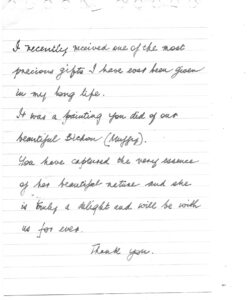 I recently received one of the most
precious gifts I have ever been given
in my long life.
It was a painting you did of our
beautiful Bichon (Muffy).
You have captured the very essence
of her beautiful nature and she
is truly a delight and will be with
us for ever.
Thank you.